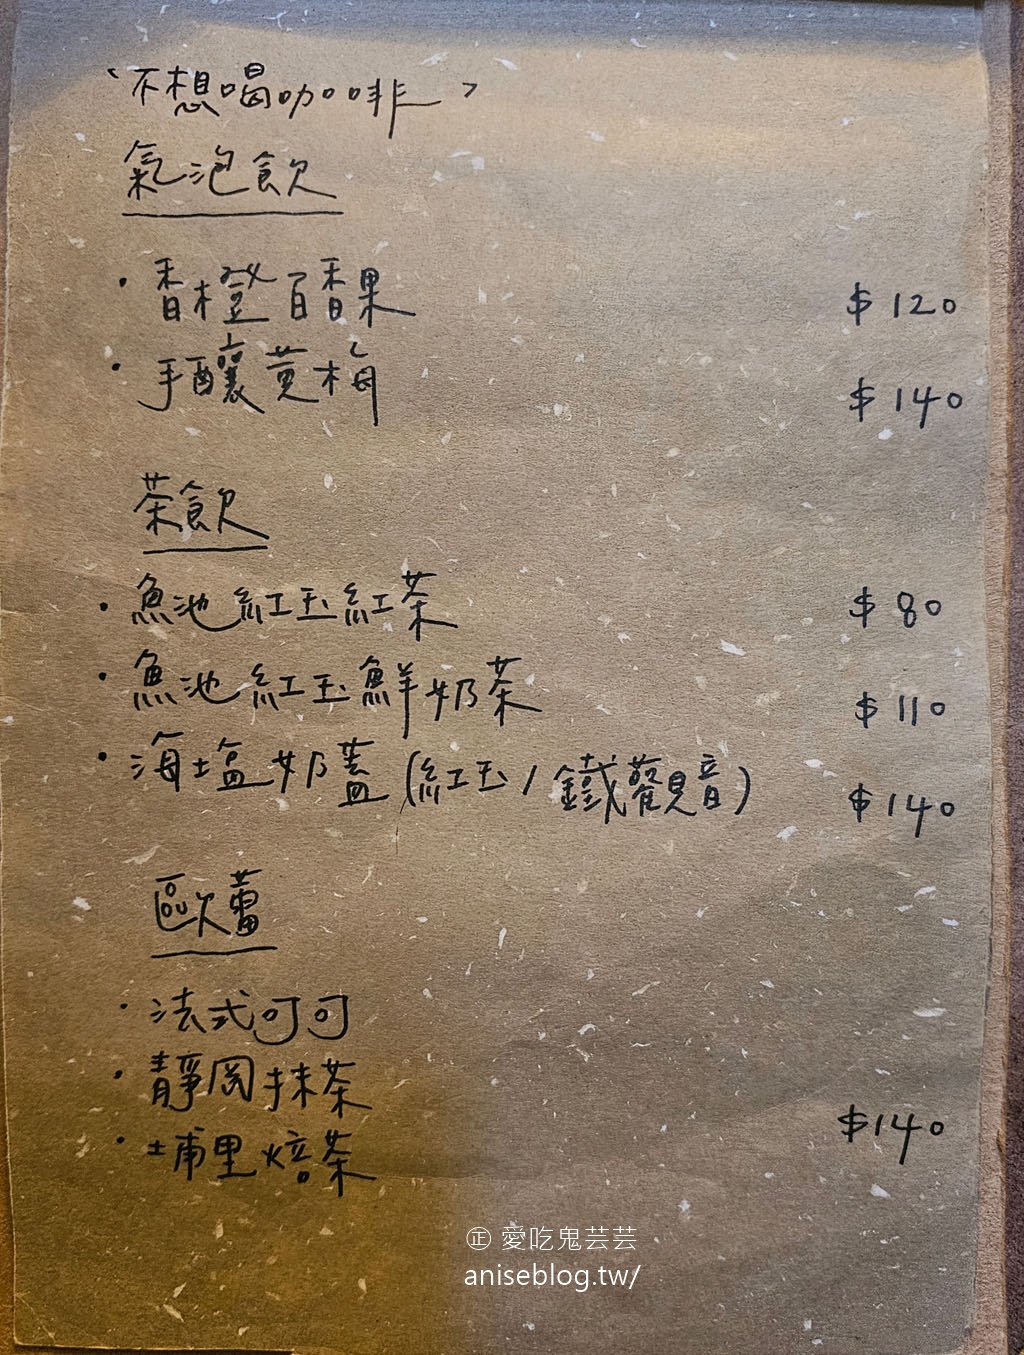 、不想喝咖啡 ，
氣泡飲
· 香橙百香果 $ 120
· 手釀黃梅 $ 140
茶飲
· 魚池紅玉紅茶 $ 80
· 魚池紅玉鮮奶茶 $ 110
· 海塩奶蓋 (紅玉 / 鐵觀音) $ 140
歐蕾
· 法式可可
· 靜岡抹茶
$140
· 埔里焙茶
㊣ 愛吃鬼芸芸
aniseblog.tw/